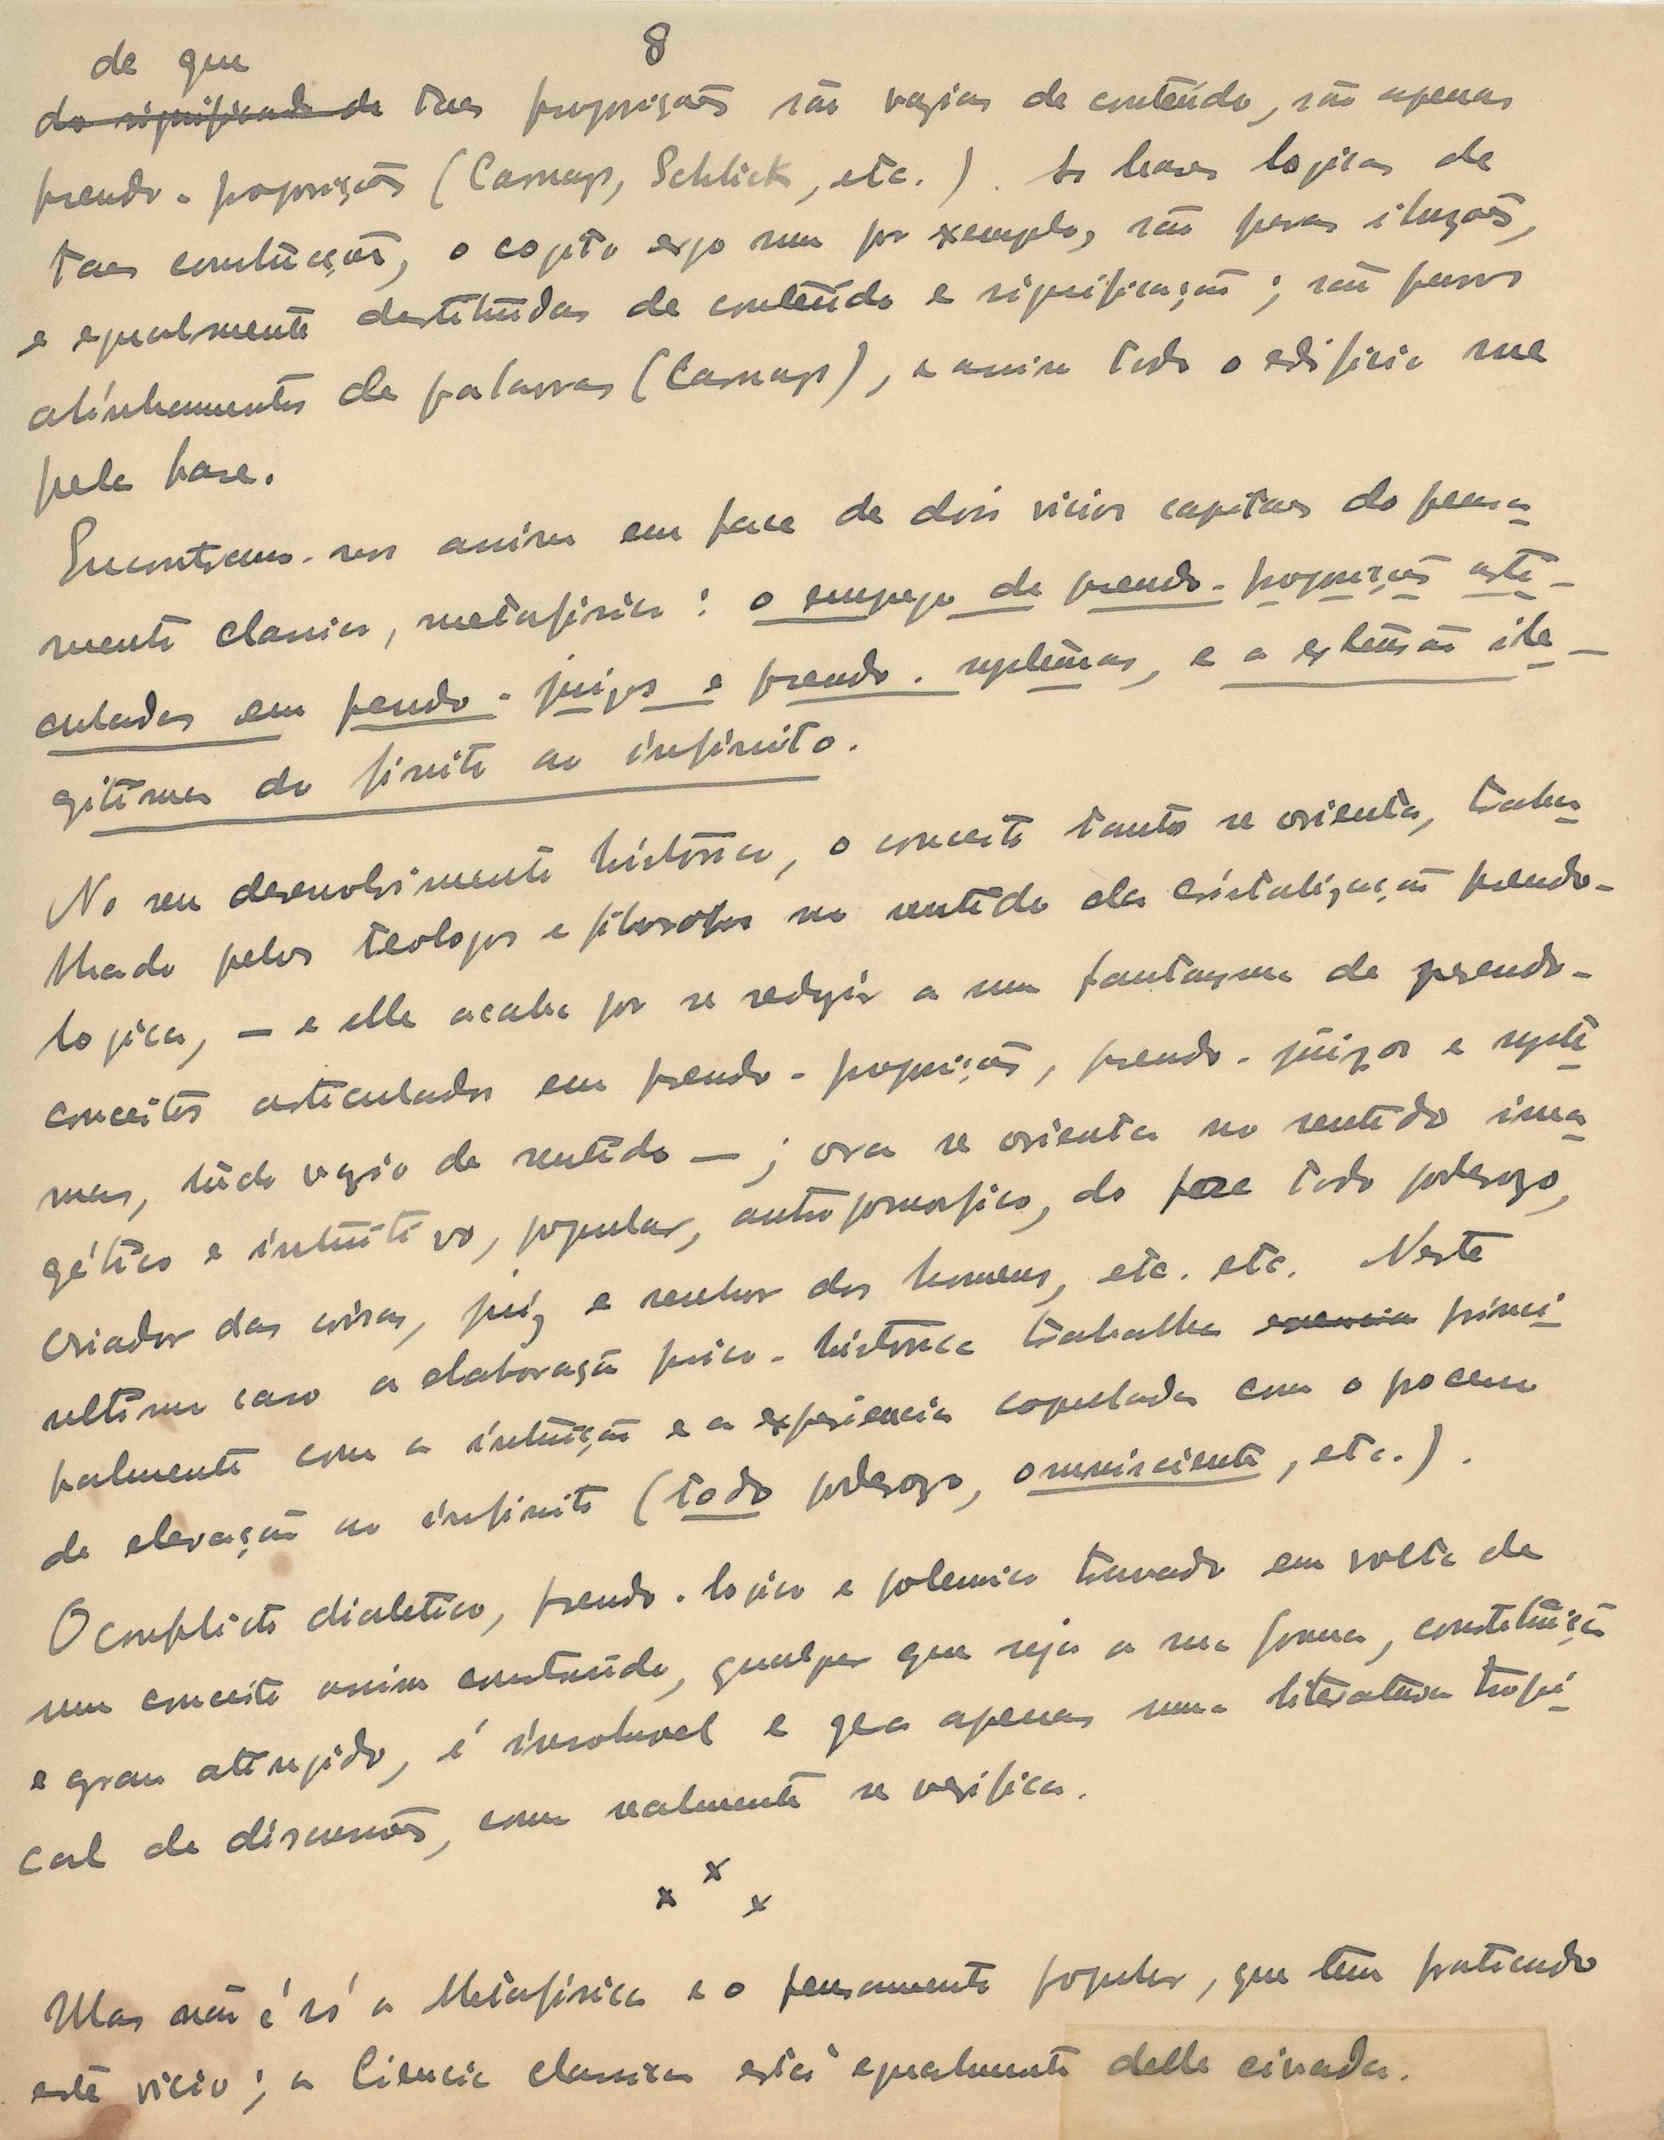 8
de que
do significado de taes proposições são vazias de conteúdo, são apenas
pseudo-proposições (Carnap, Schlick, etc.). As bases logicas de
taes construcções, o cogito ergo sum por exemplo, são puras ilusões,
e egualmente destituidas de conteúdo e significação; são puros
alinhamentos de palavras (Carnap), e assim todo o edificio rue
pela base.
Encontramo-nos assim em face de dois vicios capitaes do pensa-
mento classico, metafisico: o emprego de pseudo-proposições arti-
culadas em pseudo-juizos e pseudo-systemas, e a extensão ile-
gitima do finito ao infinito.
No seu desenvolvimento histórico, o conceito tanto se orienta, traba-
lhado pelos teologos e filosofos no sentido da cristalização pseudo-
logica, — e elle acaba por se reduzir a um fantasma de pseudo-
conceitos articulados em pseudo-proposições, pseudo-juizos e syste-
mas, tudo vazio de sentido —; ora se orienta no sentido ima-
gético e intuitivo, popular, antropomorfico, do todo poderozo,
criador das coisas, juiz e senhor dos homens, etc. etc. Neste
ultimo caso a elaboração psico-historica trabalha essencia princi-
palmente com a intuição e a experiencia copulada com o processo
de elevação ao infinito (todo poderozo, omnisciente, etc.).
O conflicto dialetico, pseudo-logico e polemico travado em volta de
um conceito assim construido, qualquer que seja a sua forma, constituição
e grau atingido, é insoluvel e gera apenas uma literatura tropi-
cal de discussões, como realmente se verifica.
x x x
Mas não é só a Metafisica e o pensamento popular, que tem praticado
este vicio; a Ciencia classica está egualmente delle eivada.